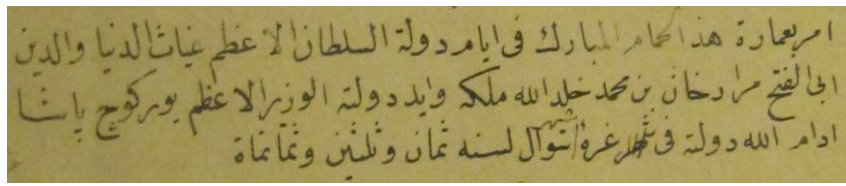 امر بعمارة هذا الحمام المبارك فى ايام دولة السلطان الاعظم غياث الدنيا والدين
ابى الفتح مراد خان بن محمد خلد الله ملكه وايد دولته الوزير الاعظم يوركوج پاشا
ادام الله دولته فى غرهٔ شهر شوال لسنه ثمان وثلثين وثمانماة